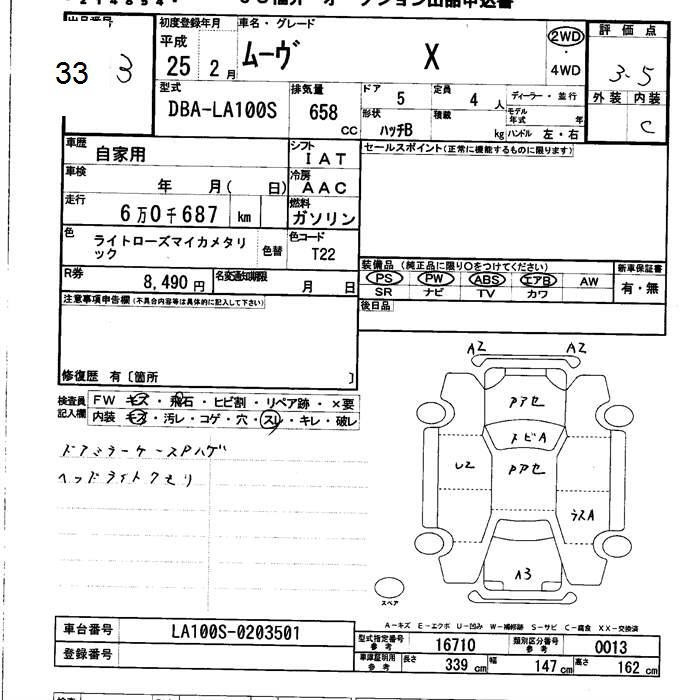 オークション出品申込書
出品番号 初度登録年月 車名・グレード 評価点
33 3 平成 25年 2月 ムーヴ X 2WD・4WD 3.5
外装 内装
C
型式 排気量 ドア 定員 ディーラー・並行
DBA-LA100S 658 CC 5 4人 モデル年式 年
形状 積載
ハッチB kg ハンドル 左・右
車歴 自家用 シフト IAT セールスポイント(正常に機能するものに限ります)
車検 年 月( 日) 冷房 AAC
走行 6万0千687 km 燃料 ガソリン
色 ライトローズマイカメタリック 色替 色コード T22
装備品 (純正品に限り○をつけてください) 新車保証書
PS PW ABS エアB AW 有・無
SR ナビ TV カワ
R券 8,490円 名変通知期限 月 日
後日品
注意事項申告欄(不具合内容等は具体的に記入して下さい)
修復歴 有〔箇所 〕
検査員記入欄 FW キズ・飛石・ヒビ割・リペア跡・×要
内装 キズ・汚レ・コゲ・穴・スレ・キレ・破レ
ドアミラーケースハゲ
ヘッドライトクモリ
A2 A2
アアセ
トビA
U2 アアセ
ラスA
A3
スペア
A-キズ E-エクボ U-凹み W-補修跡 S-サビ C-腐食 XX-交換済
車台番号 LA100S-0203501
登録番号
型式指定番号 参考 16710 類別区分番号 参考 0013
車庫証明用 参考 長さ 339cm 幅 147cm 高さ 162cm